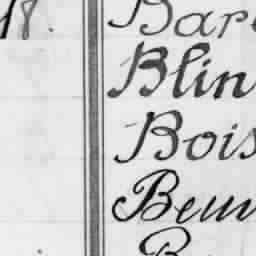 18. Bar
Blin
Bois
Beuv